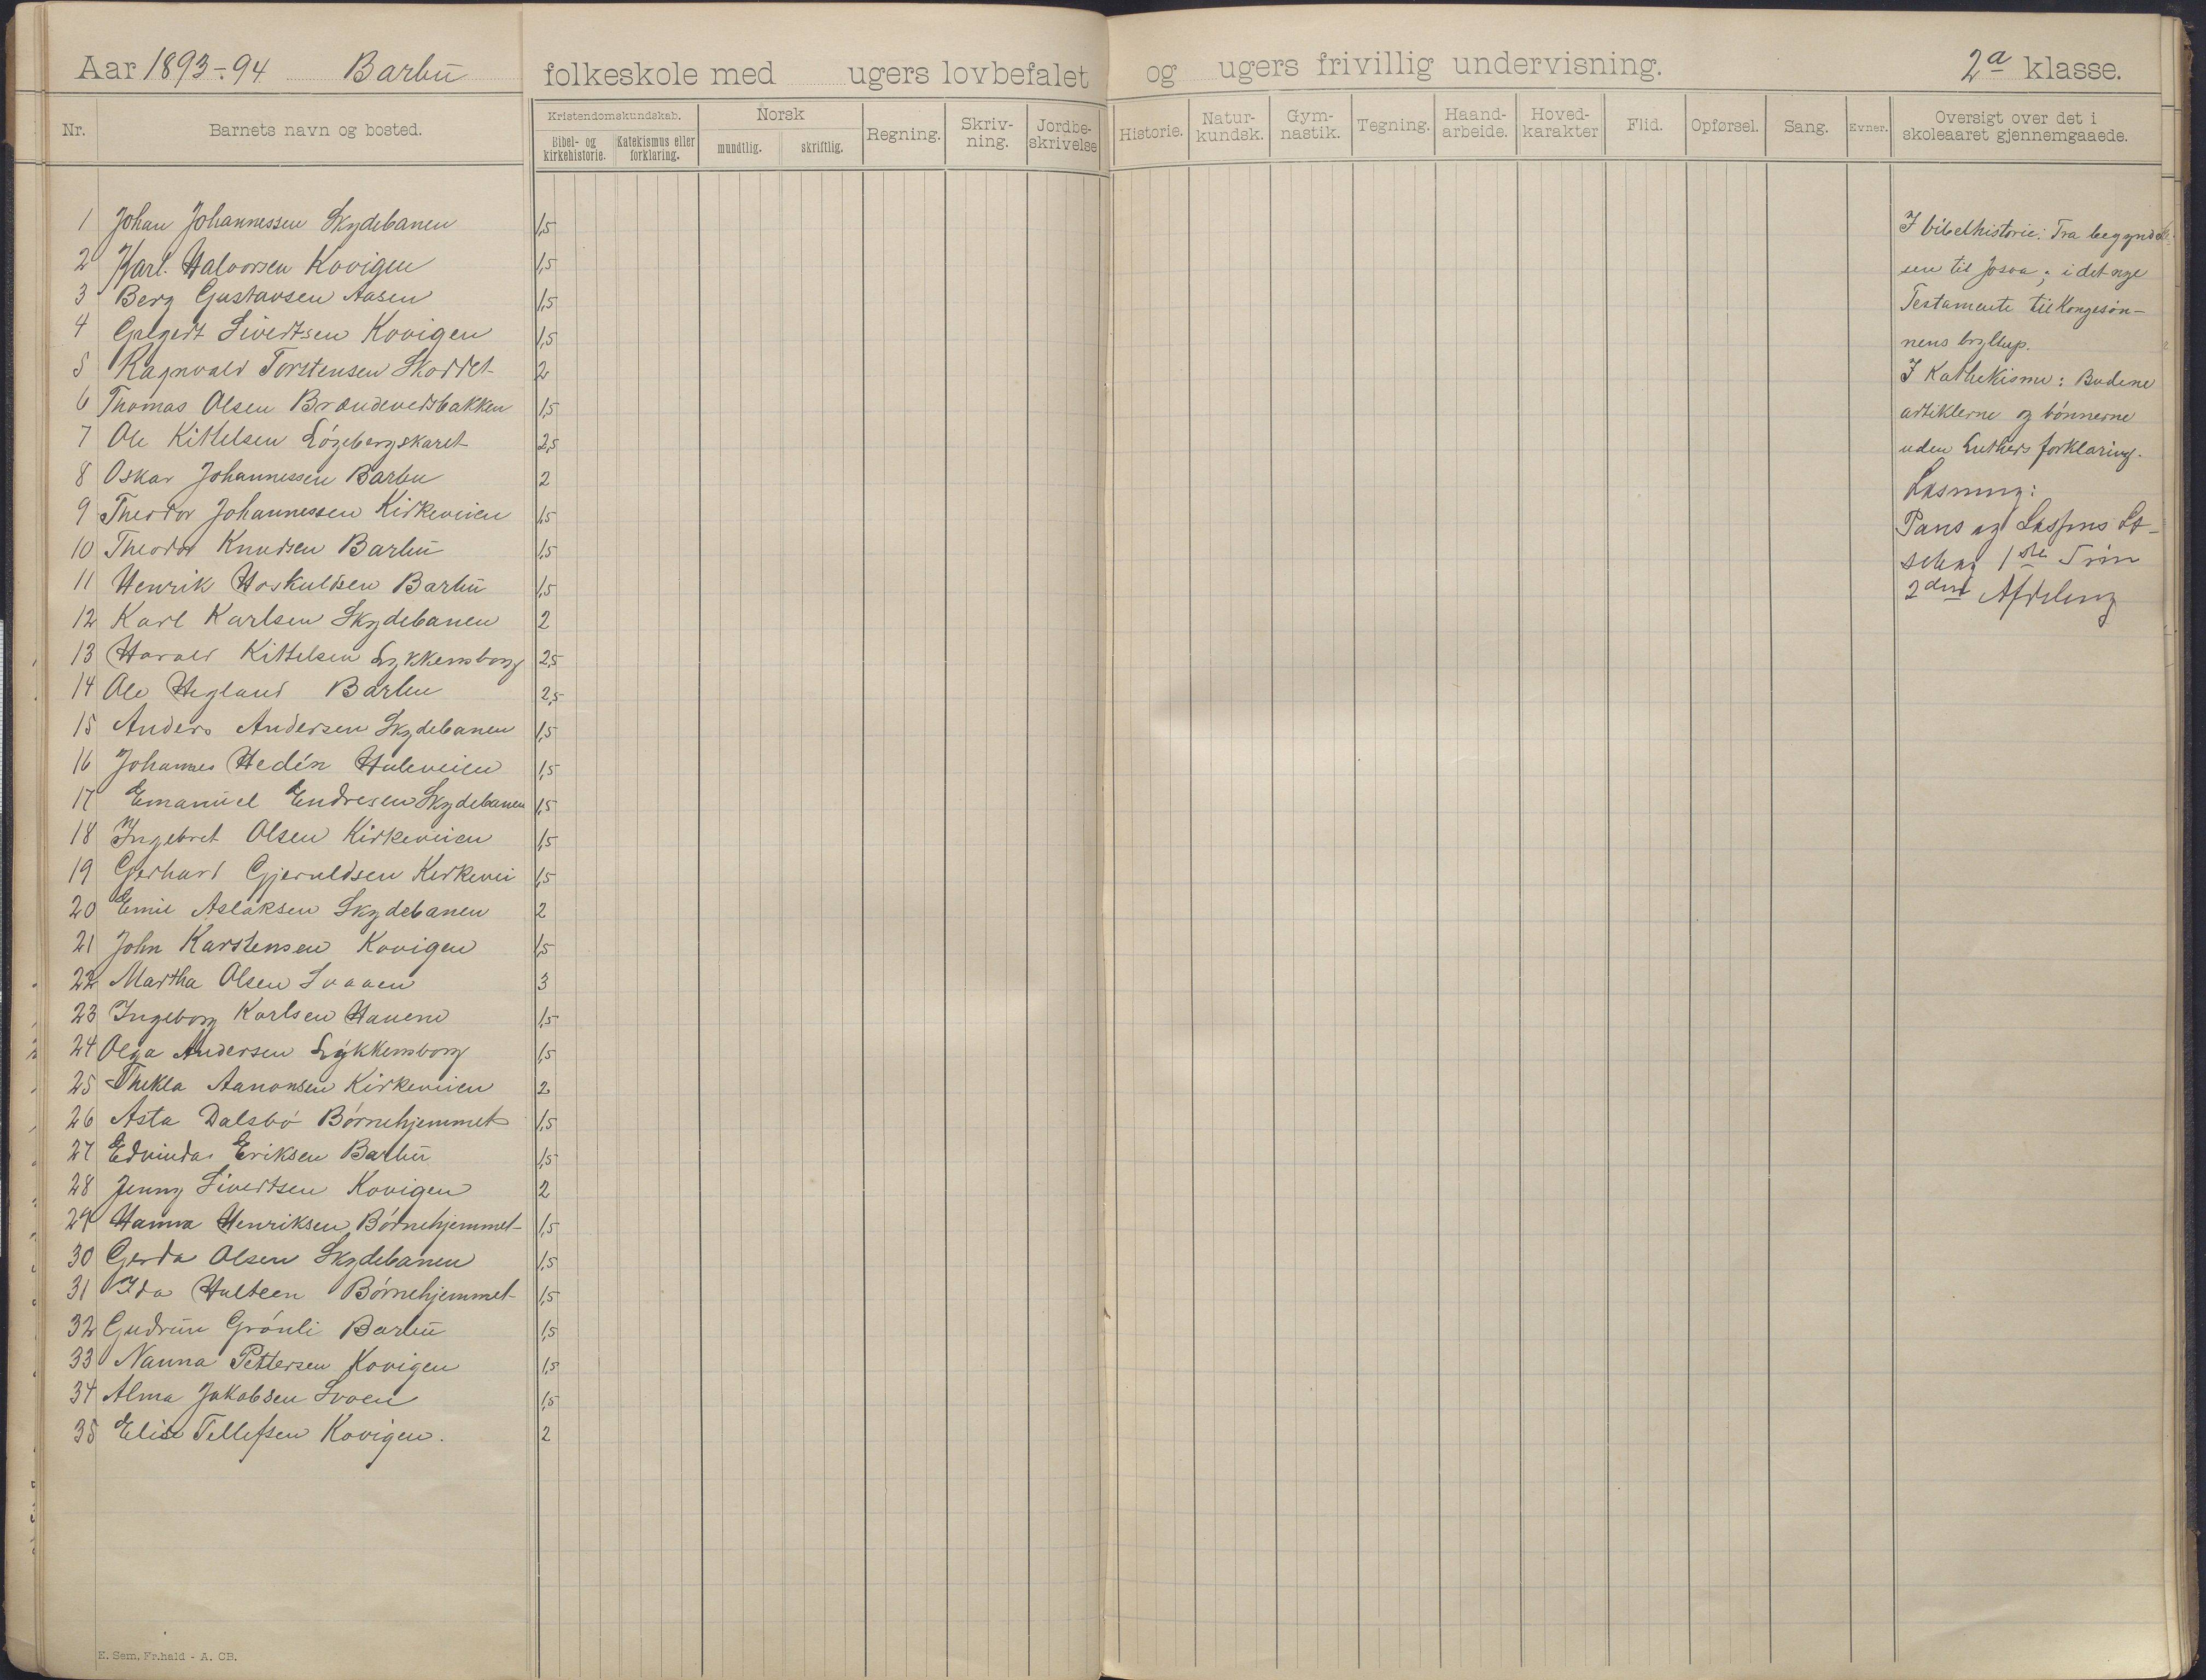 Aar 1893-94 Barbu folkeskole med ugers lovbefalet og ugers frivillig undervisning. 2a klasse.
Nr. Barnets navn og bosted. Kristendomskundskab. Bibel- og kirkehistorie. Katekismus eller forklaring. Norsk mundtlig. skriftlig. Regning. Skriv-ning. Jordbe-skrivelse Historie. Natur-kundsk. Gym-nastik. Tegning. Haand-arbeide. Hoved-karakter Flid. Opførsel. Sang. Evner. Oversigt over det i skoleaaret gjennemgaaede.
1 Johan Johannessen Skydebanen 1,5
2 Karl Halvorsen Kovigen 1,5
3 Berg Gustavsen Aasen 1,5
4 Sivertsen Kovigen 1,5
5 Ragnvald Torstensen Skoddet 2
6 Thomas Olsen Brændevedsbakken 1,5
7 Ole Kittelsen Løgebergskaret 2,5
8 Oskar Johannessen Barbu 2
9 Theodor Johannessen Kirkeveien 1,5
10 Theodor Knudsen Barbu 1,5
11 Henrik Hoskuldsen Barbu 1,5
12 Karl Karlsen Skydebanen 2
13 Harald Kittelsen Lykkensborg 2,5
14 Ole Hegland Barbu 2,5
15 Anders Andersen Skydebanen 1,5
16 Johannes Hedén Huleveien 1,5
17 Emanuel Endresen Skydebanen 1,5
18 Ingebret Olsen Kirkeveien 1,5
19 Gerhard Gjeruldsen Kirkevei 1,5
20 Emil Aslaksen Skydebanen 2
21 John Karstensen Kovigen 1,5
22 Martha Olsen Svaaen 3
23 Ingeborg Karlsen Havene 1,5
24 Olga Andersen Lykkensborg 1,5
25 Thekla Aanonsen Kirkeveien 2
26 Asta Dalsbö Börnehjemmet 1,5
27 Edvinda Eriksen Barbu 1,5
28 Jenny Sivertsen Kovigen 2
29 Hanna Henriksen Börnehjemmet 1,5
30 Gerda Olsen Skydebanen 1,5
31 Ida Hulteen Börnehjemmet 1,5
32 Gudrun Grönli Barbu 1,5
33 Nanna Pettersen Kovigen 1,5
34 Alma Jakobsen Svoen 1,5
35 Elise Tellefsen Kovigen. 2
I bibelhistorie: Fra begyndel-
sen til Josva; i det nye
Testamente til Kongesøn-
nens bryllup.
I Kathekisme: Budene
artiklerne og bönnerne
uden Luthers forklaring.
Læsning:
Pauss og Lassens Læ-
sebog 1ste Trin
2den Afdeling
E. Sem, Fr.hald - A. CB.